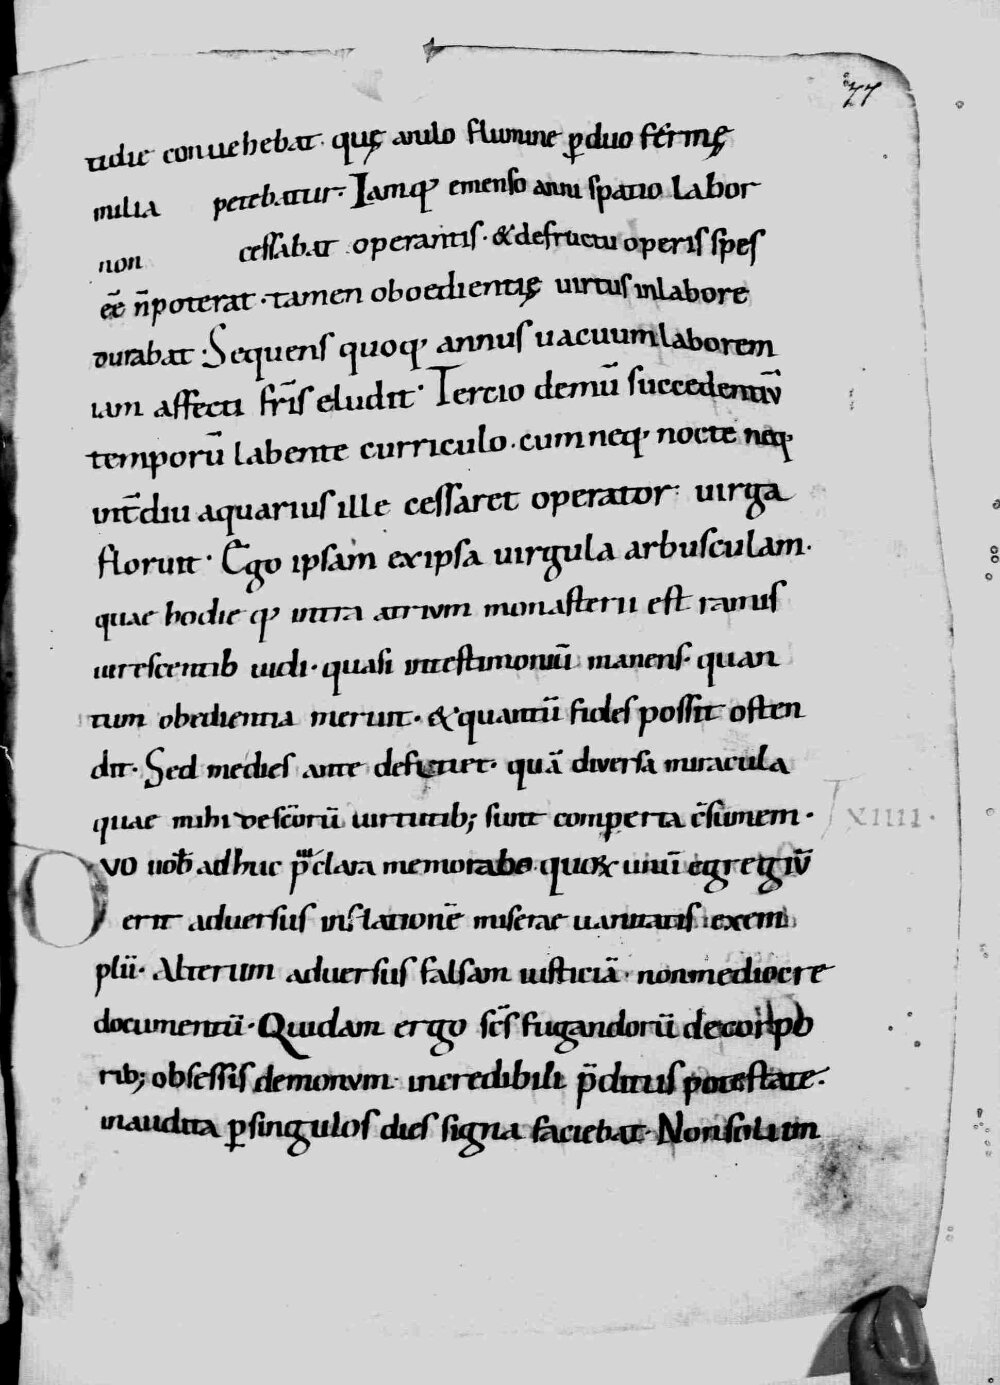 77
tidie conuehebat · quę anilo flumine ꝑduo fermę
milia petebatur · Iamq; emenso anni spatio labor
non cessabat operantis · & defructu operis spes
eē n̄poterat · tamen oboedientię uirtus inlabore
durabat · Sequens quoq; annus uacuum laborem
iam affecti fr̄is eludit · Tercio demū succedentiū
temporū labente curriculo · cum neq; nocte neq;
int̄diu aquarius ille cessaret operator · uirga
floruit · Ego ipsam exipsa uirgula arbusculam ·
quae hodie q; intra atrium monasterii est ramis
uirescentib uidi · quasi intestimoniū manens · quan
tum obedientia meruit · & quantū fides possit osten
dit · Sed me dies ante deficiet · quā diversa miracula
quae mihi de sc̄orū uirtutib; sunt comperta c̄sumem ·
LXIIII ·
Duo uob̄ adhuc p̄clara memorabo · quoꝝ unū egregiū
erit aduersus inflationē miserae uanitatis exem
plū · Alterum aduersus falsam iusticiā · non mediocre
documentū · Quidam ergo sc̄s fugandorū de corpo
rib; obsessis demonum incredibili p̄ditus potestate ·
inaudita ꝑsingulos dies signa faciebat · Non solum